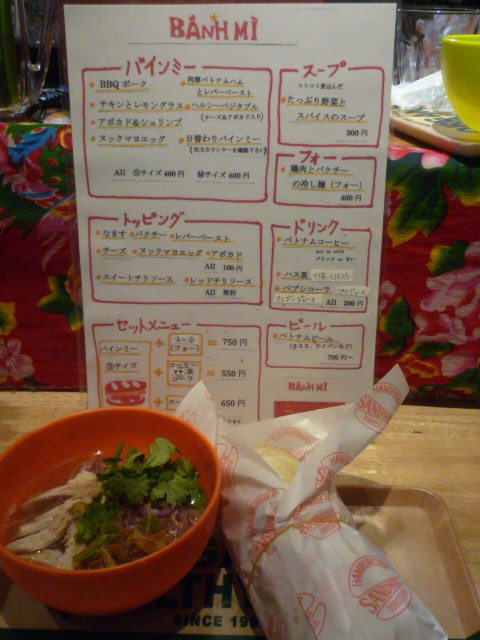 BÁNH MÌ
バインミー
BBQ ポーク
チキンとレモングラス
アボカド&シュリンプ
ヌックマヨエッグ
肉厚ベトナムハム
とレバーペースト
ヘルシーベジタブル
(チーズ&アボカド入り)
日替わりバインミー
(注文カウンターを確認下さい)
All Ⓢサイズ 400円 Ⓜサイズ 600円
スープ
コトコト煮込んだ
たっぷり野菜と
スパイスのスープ
300円
フォー
鶏肉とパクチー
の冷し麺(フォー)
400円
トッピング
なます パクチー レバーペースト
チーズ ヌックマヨエッグ アボカド
All 100円
スイートチリソース レッドチリソース
All 無料
ドリンク
ベトナムコーヒー
hot or cold
ブラック or 甘い
ハス茶
ペプシコーラ
マンゴージュース
All 200円
セットメニュー
バインミー
Ⓢサイズ
+ (フォー) = 750円
+ コーヒー
コーラ = 550円
+ スー 650円
ビール
ベトナムビール
700円~
BÁNH MÌ
HAMBURGER
SANDWICH
HAMBURGER
SANDWICH
SINCE 199